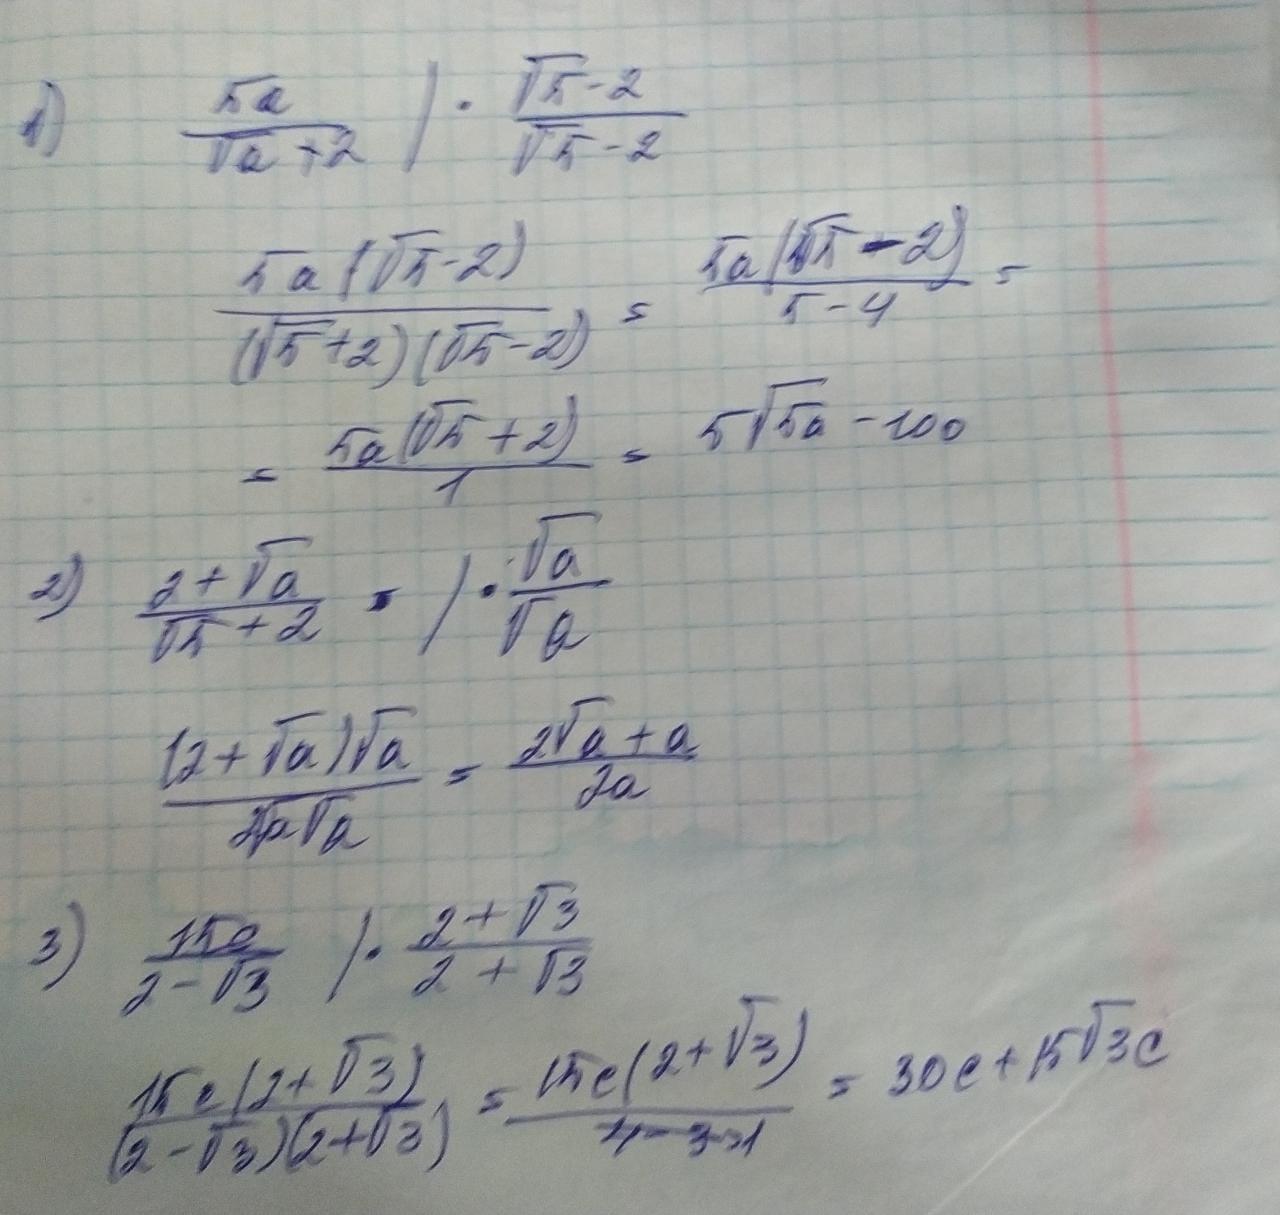 1) 5a/(√a+2) | · (√5-2)/(√5-2)
5a(√5-2)/((√5+2)(√5-2)) = 5a(√5-2)/(5-4) =
= 5a(√5+2)/1 = 5√5a - 100
2) (2+√a)/(√5+2) = | · √a/√a
(2+√a)√a/(2√a√a) = (2√a+a)/2a
3) 15c/(2-√3) | · (2+√3)/(2+√3)
15c(2+√3)/((2-√3)(2+√3)) = 15c(2+√3)/(4-3=1) = 30c+15√3c